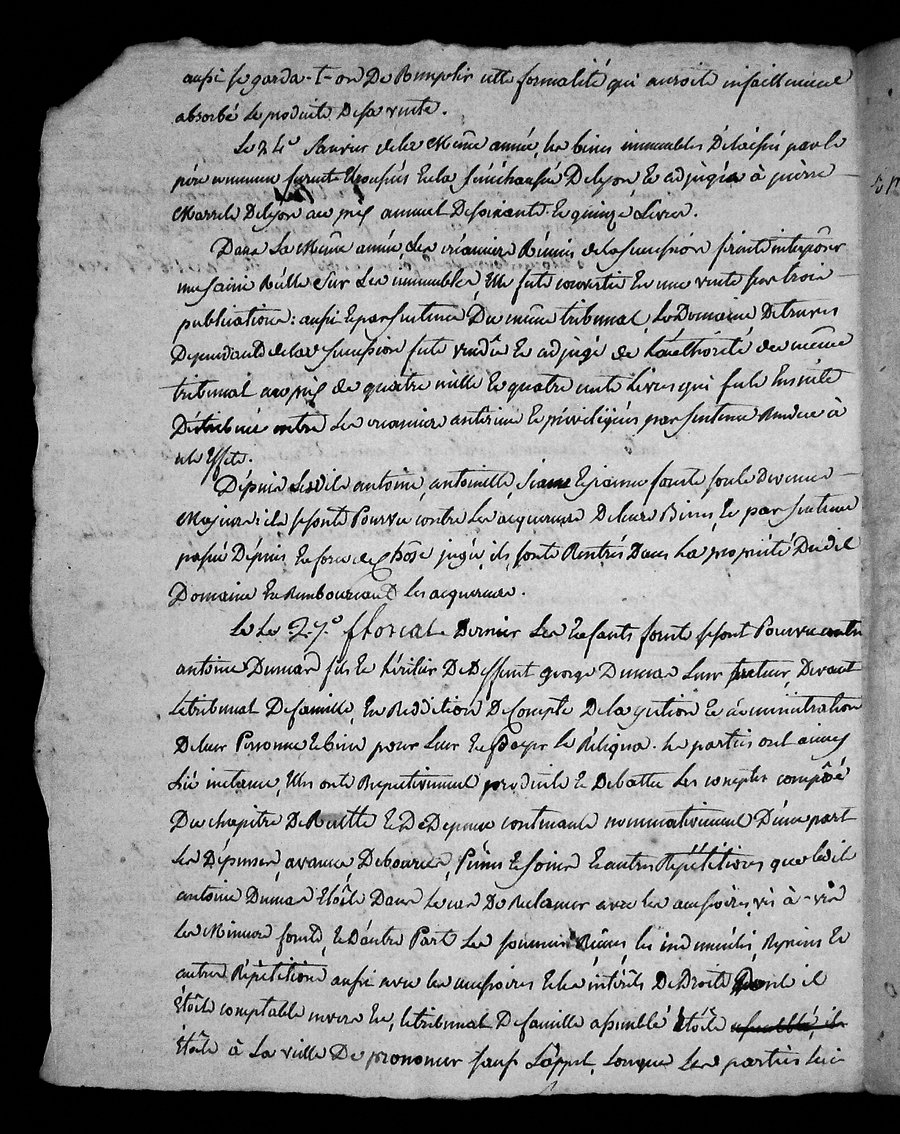 aussi se garda-t-on De Remplir cette formalité qui auroit infailliment
absorbé Le produit De sa vente.
Le 24e Janvier de la Même année, les biens immeubles Délaissés par le
père commun furent Exposés En la sénéchaussée De lyon et adjugés à pierre
Marrel De lyon au prix annuel De soixante Et quinze Livres.
Dans La Même année, Les créanciers Réunis de la succession firent interposer
une saisie Réelle sur Les immeubles, Elle fut convertie En une vente sur trois
publications: aussi Et par sentence Du même tribunal, Le Domaine De
Dependant de la succession fut vendû Et adjugé de L'authorité du même
tribunal au prix de quatre mille Et quatre cents Livres qui fut Ensuite
Distribué entre Les créanciers antérieurs Et privilégiés par sentence Rendue à
cet Effet.
Depuis Lesdits antoine, antoinette, Et jeanne font sont Devenus
Majeurs ils se sont Pourvu contre Les acquereurs De leurs Biens, Et par sentence
passée Depuis En force de Chose jugée, ils sont Rentrés Dans La propriété Dudit
Domaine En Remboursant les acquereurs.
Le 27e floreal Dernier Les Enfants se sont Pourvu contre
antoine Dumas fils Et héritier De Deffunt george Dumas Leur tuteur, Devant
Le tribunal De famille, En Reddition De Compte De La gestion Et administration
De leur Personne Et biens pour Leur En Payer Le Réliqua. Les parties ont ainsi
Lié instance, Elles ont Respectivement produit Et Débattu Les comptes composé
Du chapitre De Recette Et De Depense contenant nommativement D'une part
Les Dépenses, avances, Debourcés, Peines Et soins Et autres Répétitions que ledit
antoine Dumas Etoit Dans Le cas De Reclamer avec les accessoires vis à-vis
Les Mineurs, Et D'autre Part Les sommes Reçues, les indemnités, Et
autres Répétitions aussi avec les accessoires Et les intérêts De Droit Dont il
Etoit comptable envers Eux, Le tribunal De famille assemblé Etoit
Etoit à La veille De prononcer sauf L'appel, Lorsque Les parties